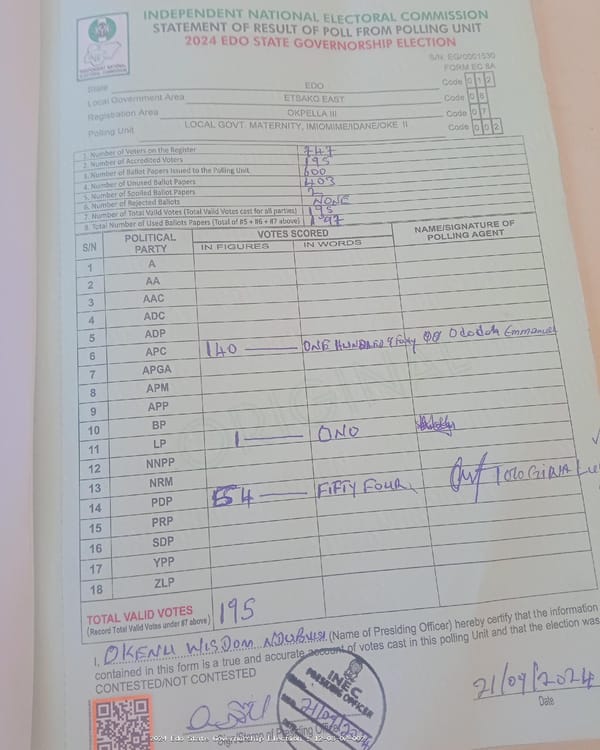 INDEPENDENT NATIONAL ELECTORAL COMMISSION
STATEMENT OF RESULT OF POLL FROM POLLING UNIT
2024 EDO STATE GOVERNORSHIP ELECTION
S/N: EG/0001530
FORM EC 8A
State EDO Code 012
Local Government Area ETSAKO EAST Code 06
Registration Area OKPELLA III Code 07
Polling Unit LOCAL GOVT. MATERNITY, IMIOMIME/IDANE/OKE II Code 002
1. Number of Voters on the Register 747
2. Number of Accredited Voters 195
3. Number of Ballot Papers Issued to the Polling Unit 600
4. Number of Unused Ballot Papers 403
5. Number of Spoiled Ballot Papers 2
6. Number of Rejected Ballots NONE
7. Number of Total Valid Votes (Total Valid Votes cast for all parties) 195
8. Total Number of Used Ballots Papers (Total of #5 + #6 + #7 above) 197
S/N POLITICAL PARTY VOTES SCORED NAME/SIGNATURE OF POLLING AGENT
IN FIGURES IN WORDS
1 A
2 AA
3 AAC
4 ADC
5 ADP
6 APC 140 ONE HUNDRED & Foxy Ododoh Emmanuel
7 APGA
8 APM
9 APP
10 BP
11 LP 1 ONO
12 NNPP
13 NRM
14 PDP 54 FIFTY FOUR
15 PRP
16 SDP
17 YPP
18 ZLP
TOTAL VALID VOTES 195
(Record Total Valid Votes under #7 above)
I, OKENU WISDOM NDUBUISI (Name of Presiding Officer) hereby certify that the information
contained in this form is a true and accurate account of votes cast in this polling Unit and that the election was
CONTESTED/NOT CONTESTED
INEC
PRESIDING OFFICER
21/09/2024
21/09/2024
Date
2024 Edo State Governorship Election